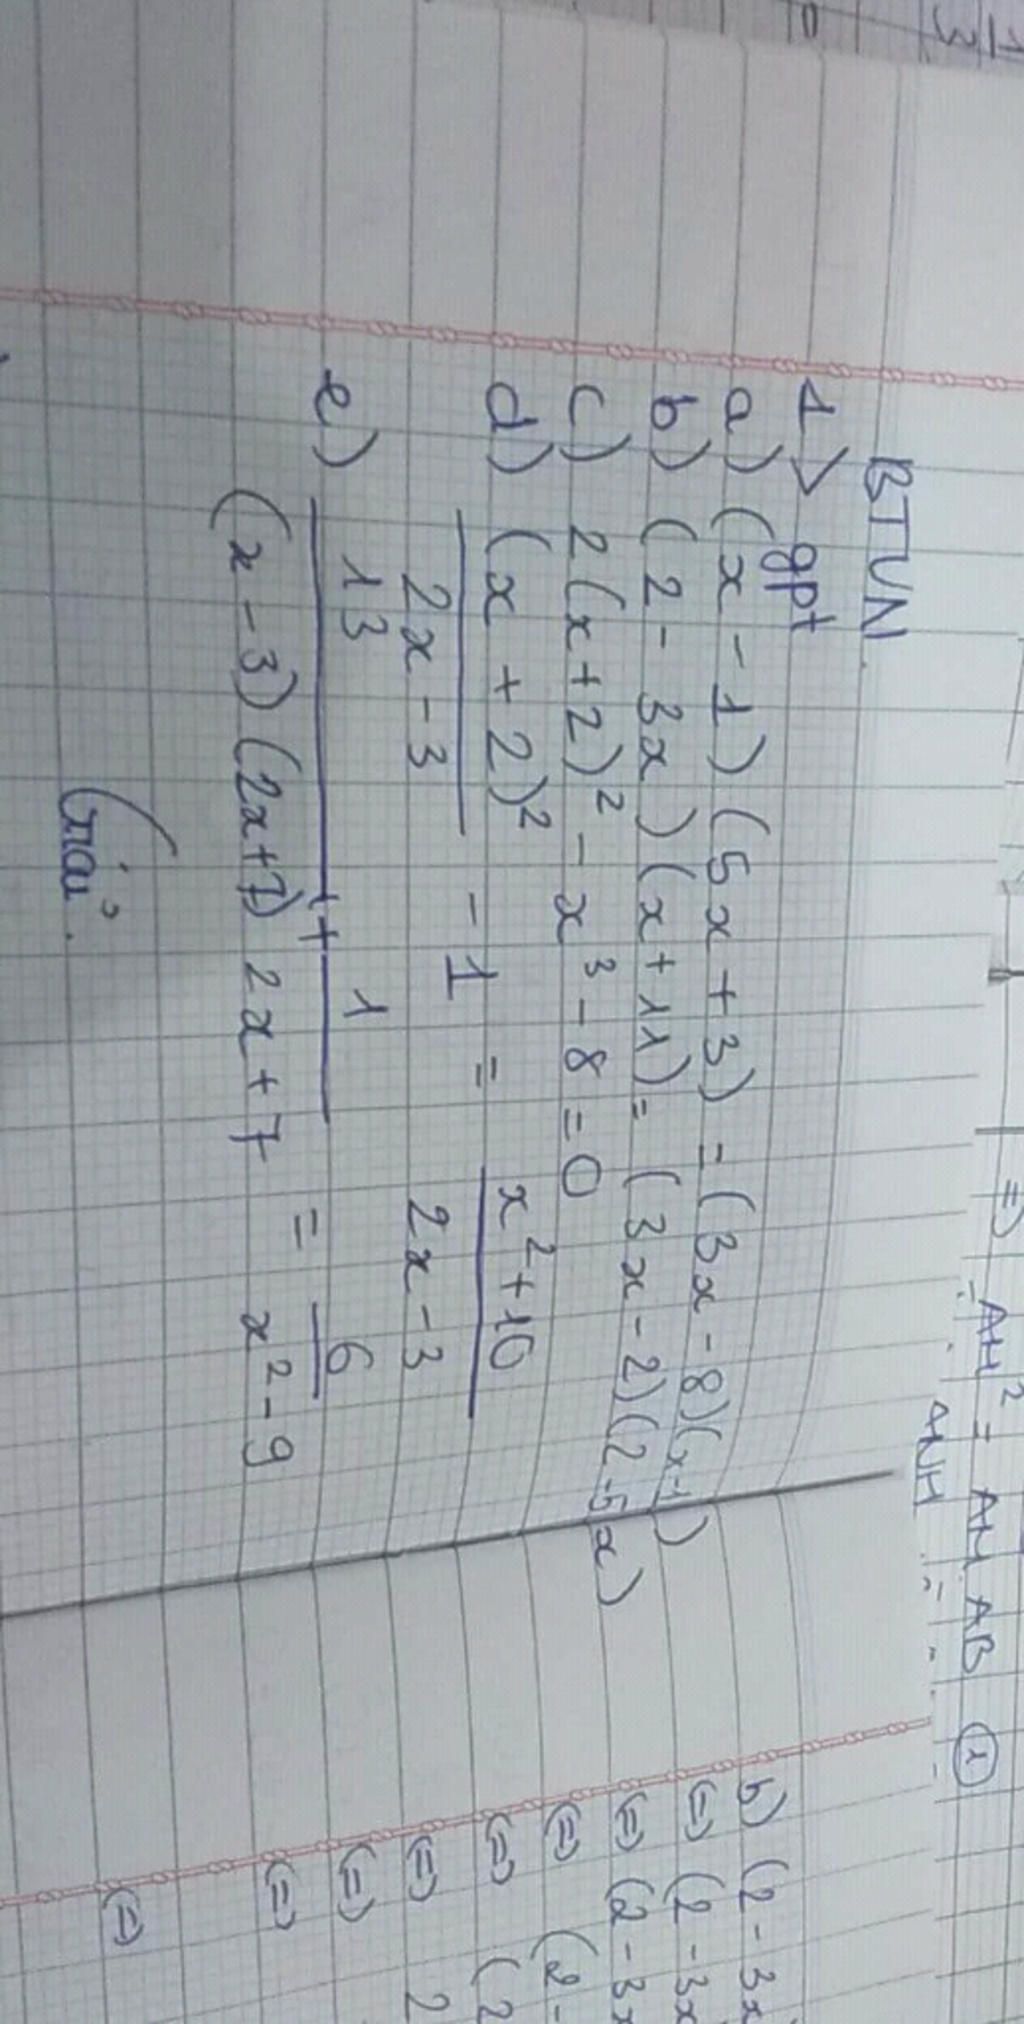 BTVN.
1> gpt
a) (x - 1) (5x + 3) = (3x - 8)(x-1)
b) (2 - 3x)(x + 11) = (3x - 2)(2 - 5x)
c) 2(x+2)² - x³ - 8 = 0
d) (x + 2)² / 2x - 3 - 1 = x² + 10 / 2x - 3
e) 13 / (x - 3)(2x+7) + 1 / 2x + 7 = 6 / x² - 9
Giải.
=) AH² = AH.AB ①
ANH
b) (2 - 3x
(=) (2 - 3x
(=) (2 - 3x
(=) (2 -
(=) (2
(=) 2
(=)
(=)
(=)